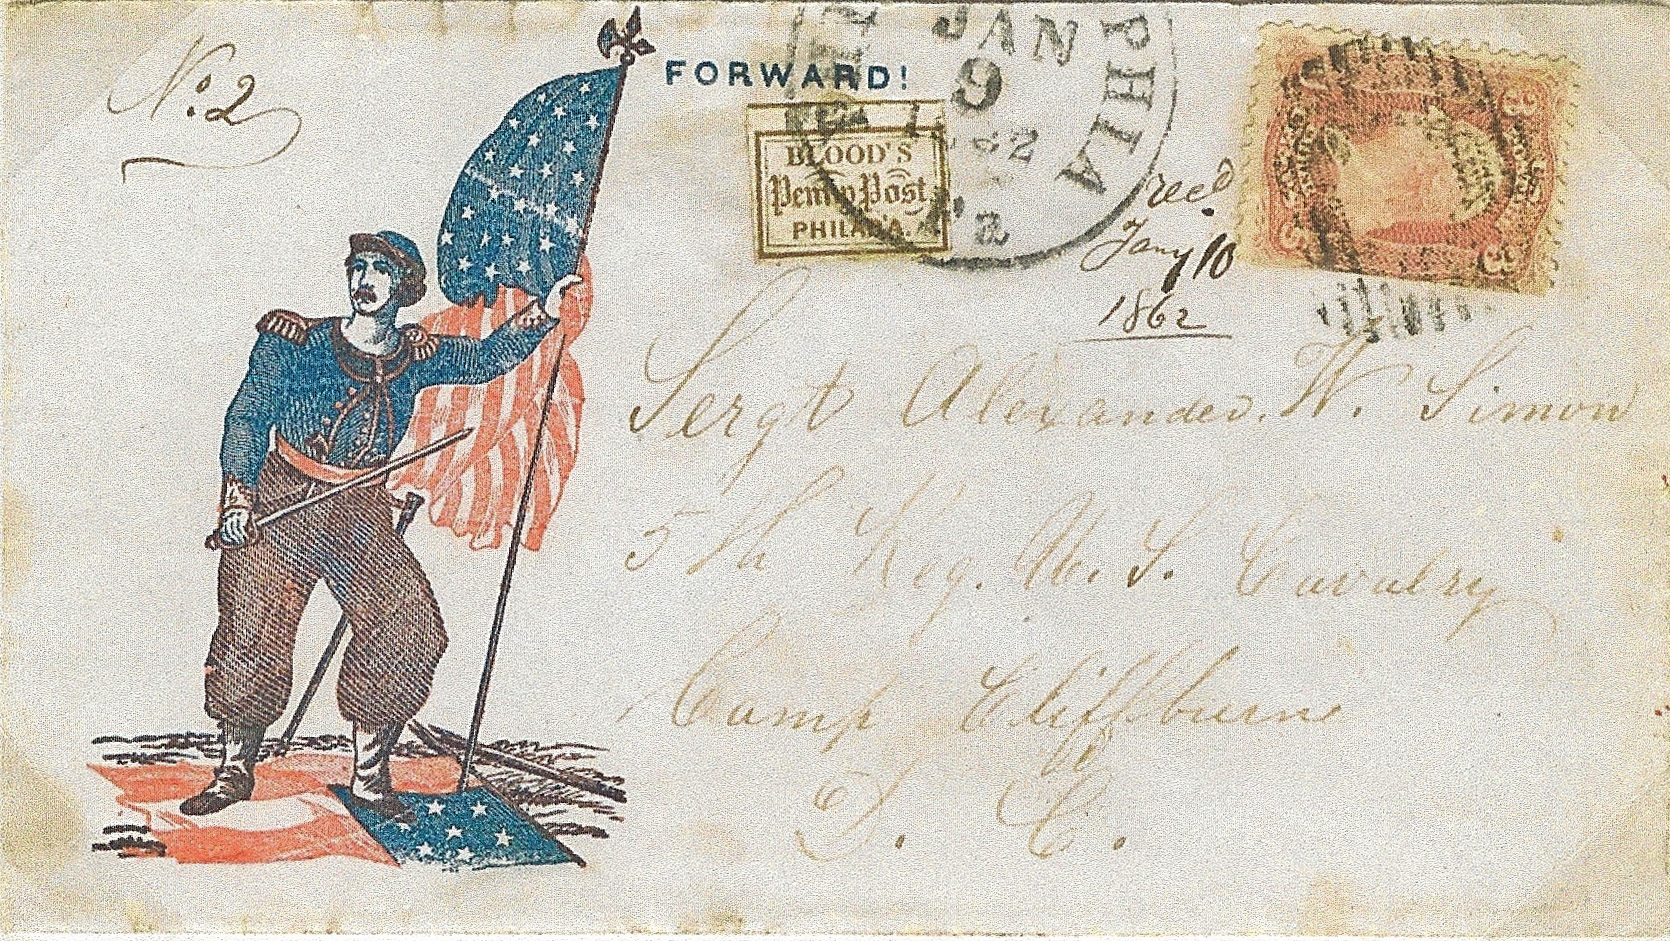 No. 2
FORWARD!
JAN
9
PHILA
BLOOD'S
Penny Post
PHILAD'A.
recd
Jany 10
1862
3
Sergt Alexander. W. Simon
5th Reg. U. S. Cavalry
Camp Cliffburn
D. C.